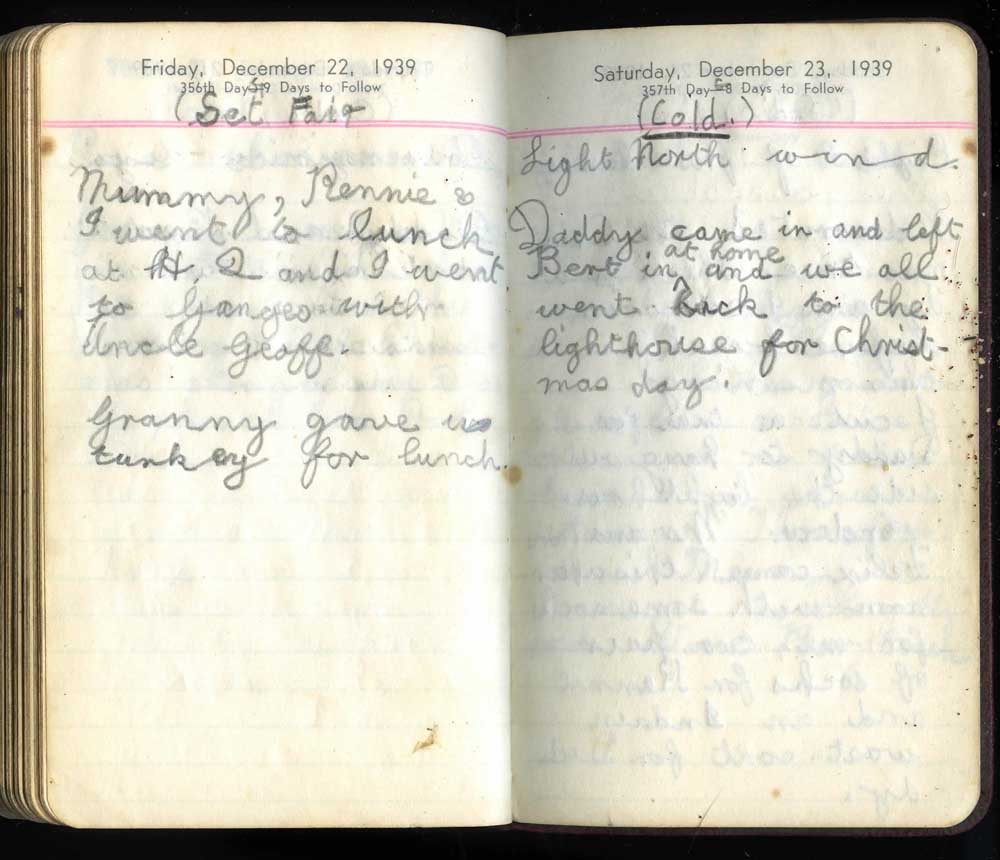 Friday, December 22, 1939
356th Day—9 Days to Follow
(Set Fair)
Mummy, Rennie &
I went to lunch
at H. Q and I went
to Ganges with
Uncle Geoff.
Granny gave us
turkey for lunch.
Saturday, December 23, 1939
357th Day—8 Days to Follow
(Cold.)
Light North wind.
Daddy came in and left
at home
Bert in ^ and we all
went back to the
lighthouse for Christ-
mas day.